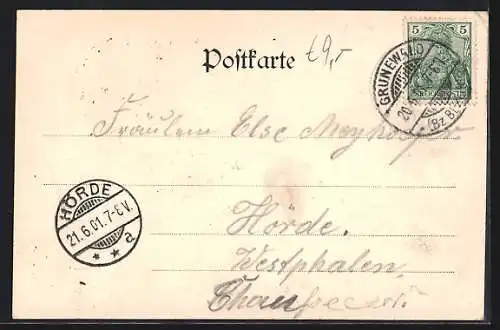 Postkarte
£9,-
5 5
GRUNEWALD
20.
(Bz. B
Fräulein Else Meyhoefer
HÖRDE
21.6.01.7-8V.
* * a
Hörde.
Westphalen.